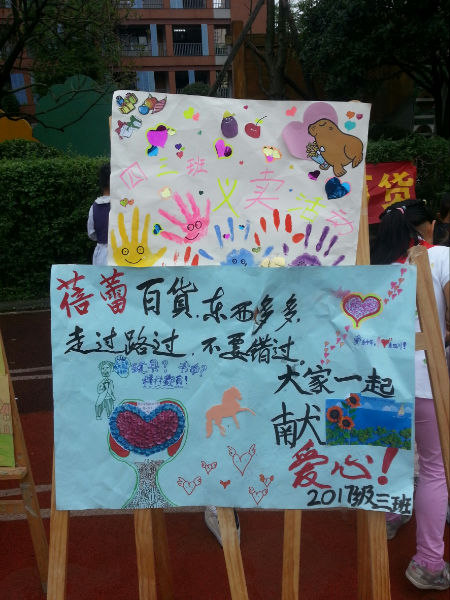 四三班
义卖活动
货
蓓蕾百貨.东西多多.
走过路过 不要错过.
大家一起
献
爱心!
2017级三班